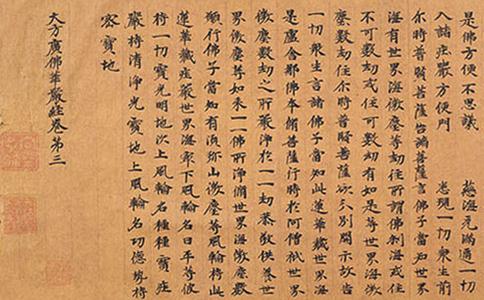 是佛方便不思議 慈海充滿遍一切
入諸莊嚴方便門 現一切衆生前
尔時普賢菩薩告諸菩薩言佛子當知世界
海有世界海微塵等劫住所謂佛刹海或住
不可數劫或住可數劫有如是等世界海微
塵數劫住尔時普賢菩薩欲分別開示故告
一切衆生言諸佛子當知此蓮華藏世界海
是盧舍那佛本修菩薩行時於阿僧祇世界
微塵數劫之所嚴淨於一一劫恭敬供養世
界微塵等如來一一佛所淨修世界海微塵數
願行佛子當知有須弥山微塵等風輪持此
蓮華藏莊嚴世界海最下風輪名曰平等彼
持一切寶光明地次上風輪名種種寶莊
嚴持清淨光寶地上風輪名功德勢持
密寶地
大方廣佛華嚴經卷第三